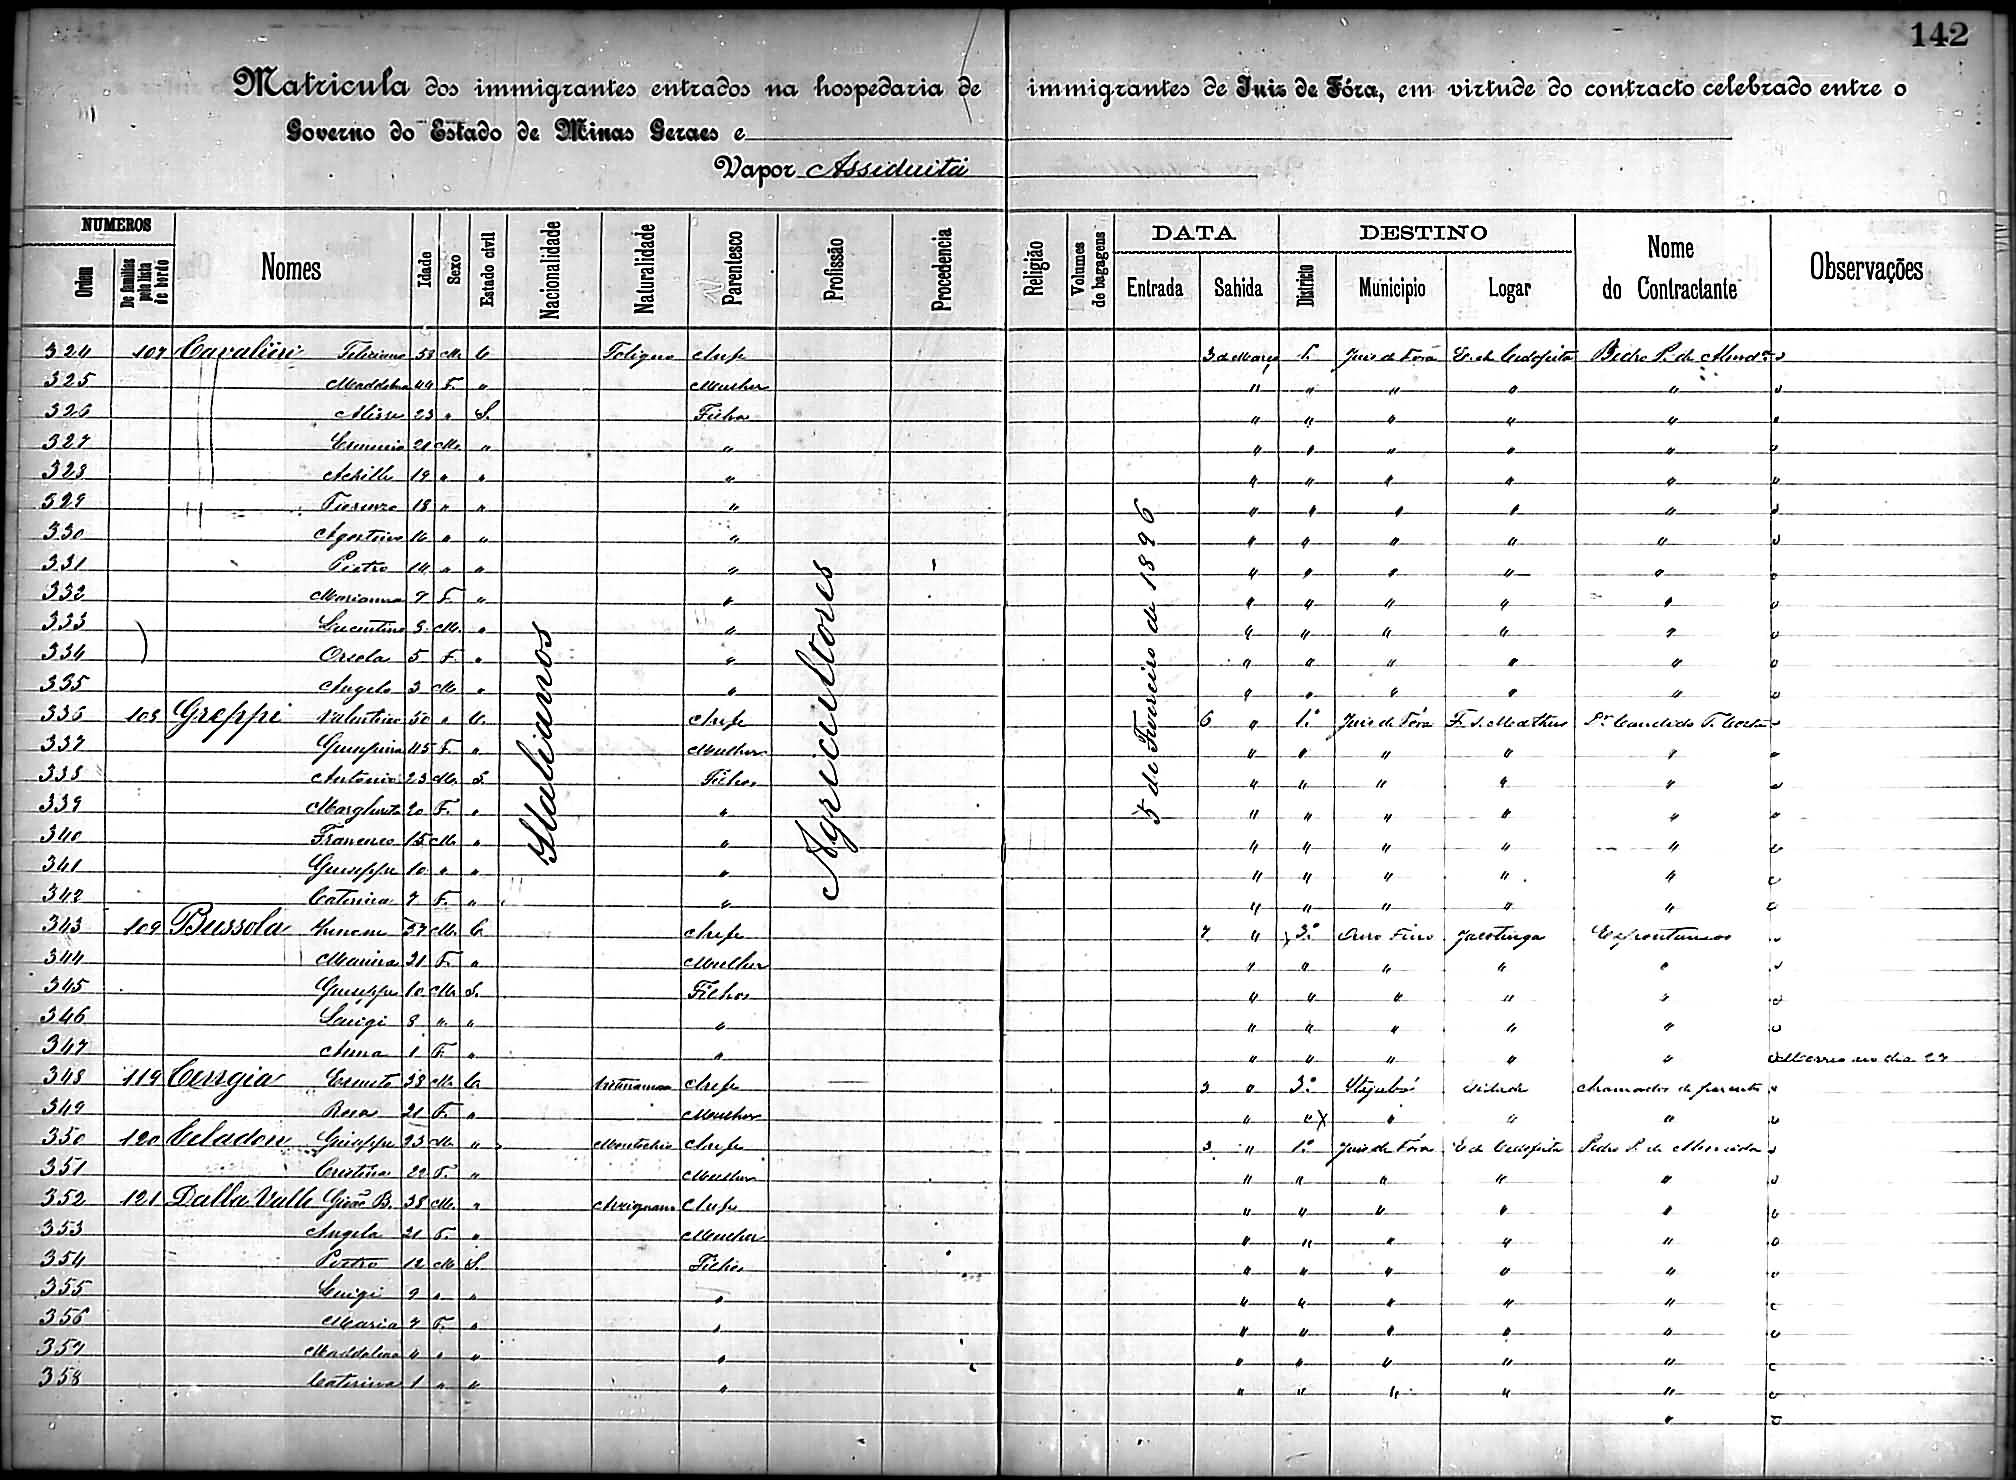 142
Matricula dos immigrantes entrados na hospedaria de immigrantes de Juiz de Fóra, em virtude do contracto celebrado entre o
Governo do Estado de Minas Geraes e
Vapor Assiduitá
NUMEROS DATA DESTINO
Ordem De familias pela lista de bordo Nomes Idade Sexo Estado civil Nacionalidade Naturalidade Parentesco Profissão Procedencia Religião Volumes de bagagens Entrada Sahida Districto Municipio Logar Nome do Contractante Observações
Italianos
Agricultores
5 de Fevereiro de 1896
324 107 Cavalieri 53 M. C. Chefe 3 de Março 1. Juiz de Fóra Pedro P. de
325 Maddalena 44 F. " Mulher " " " " "
326 23 " S. Filhos " " " " "
327 21 M. " " " " " " "
328 Achille 19 " " " " " " " "
329 18 " " " " " " " "
330 Agostino 16 " " " " " " " "
331 Pietro 14 " " " " " " " "
332 Marianna 7 F. " " " " " " "
333 M. " " " " " " "
334 Orsola 5 F. " " " " " " "
335 Angelo 3 M. " " " " " " "
336 108 Greppi Valentino 50 " C. Chefe 6 " 1.º Juiz de Fóra F. S. Matheus Dr. Candido T.
337 45 F. " Mulher " " " " "
338 Antonio 23 M. S. Filhos " " " " "
339 Margherita 20 F. " " " " " " "
340 Francesco 15 M. " " " " " " "
341 Giuseppe 10 " " " " " " " "
342 Caterina 7 F. " " " " " " "
343 109 Bussola M. C. Chefe 7 " 3.º Ouro Fino Jacotinga Espontaneos
344 Marina 31 F. " Mulher " " " " "
345 Giuseppe 10 M. S. Filhos " " " " "
346 Luigi 8 " " " " " " " "
347 Anna 1 F. " " " " " " " Morreu no dia 27
348 119 Ernesto M. C. Chefe 3 " 3.º Itajubá Cidade Chamados de parentes
349 Rosa 21 F. " Mulher " " " " "
350 120 Celadon Giuseppe 23 M. " Chefe 3 " 1.º Juiz de Fóra Pedro P. de Almeida
351 Cristina 22 F. " Mulher " " " " "
352 121 Dalla Valle B. 38 M. " Chefe " " " " "
353 Angela 31 F. " Mulher " " " " "
354 Pietro 12 M S. Filhos " " " " "
355 Luigi 9 " " " " " " " "
356 Maria 7 F. " " " " " " "
357 Maddalena 4 " " " " " " " "
358 Caterina 1 " " " " " " " "